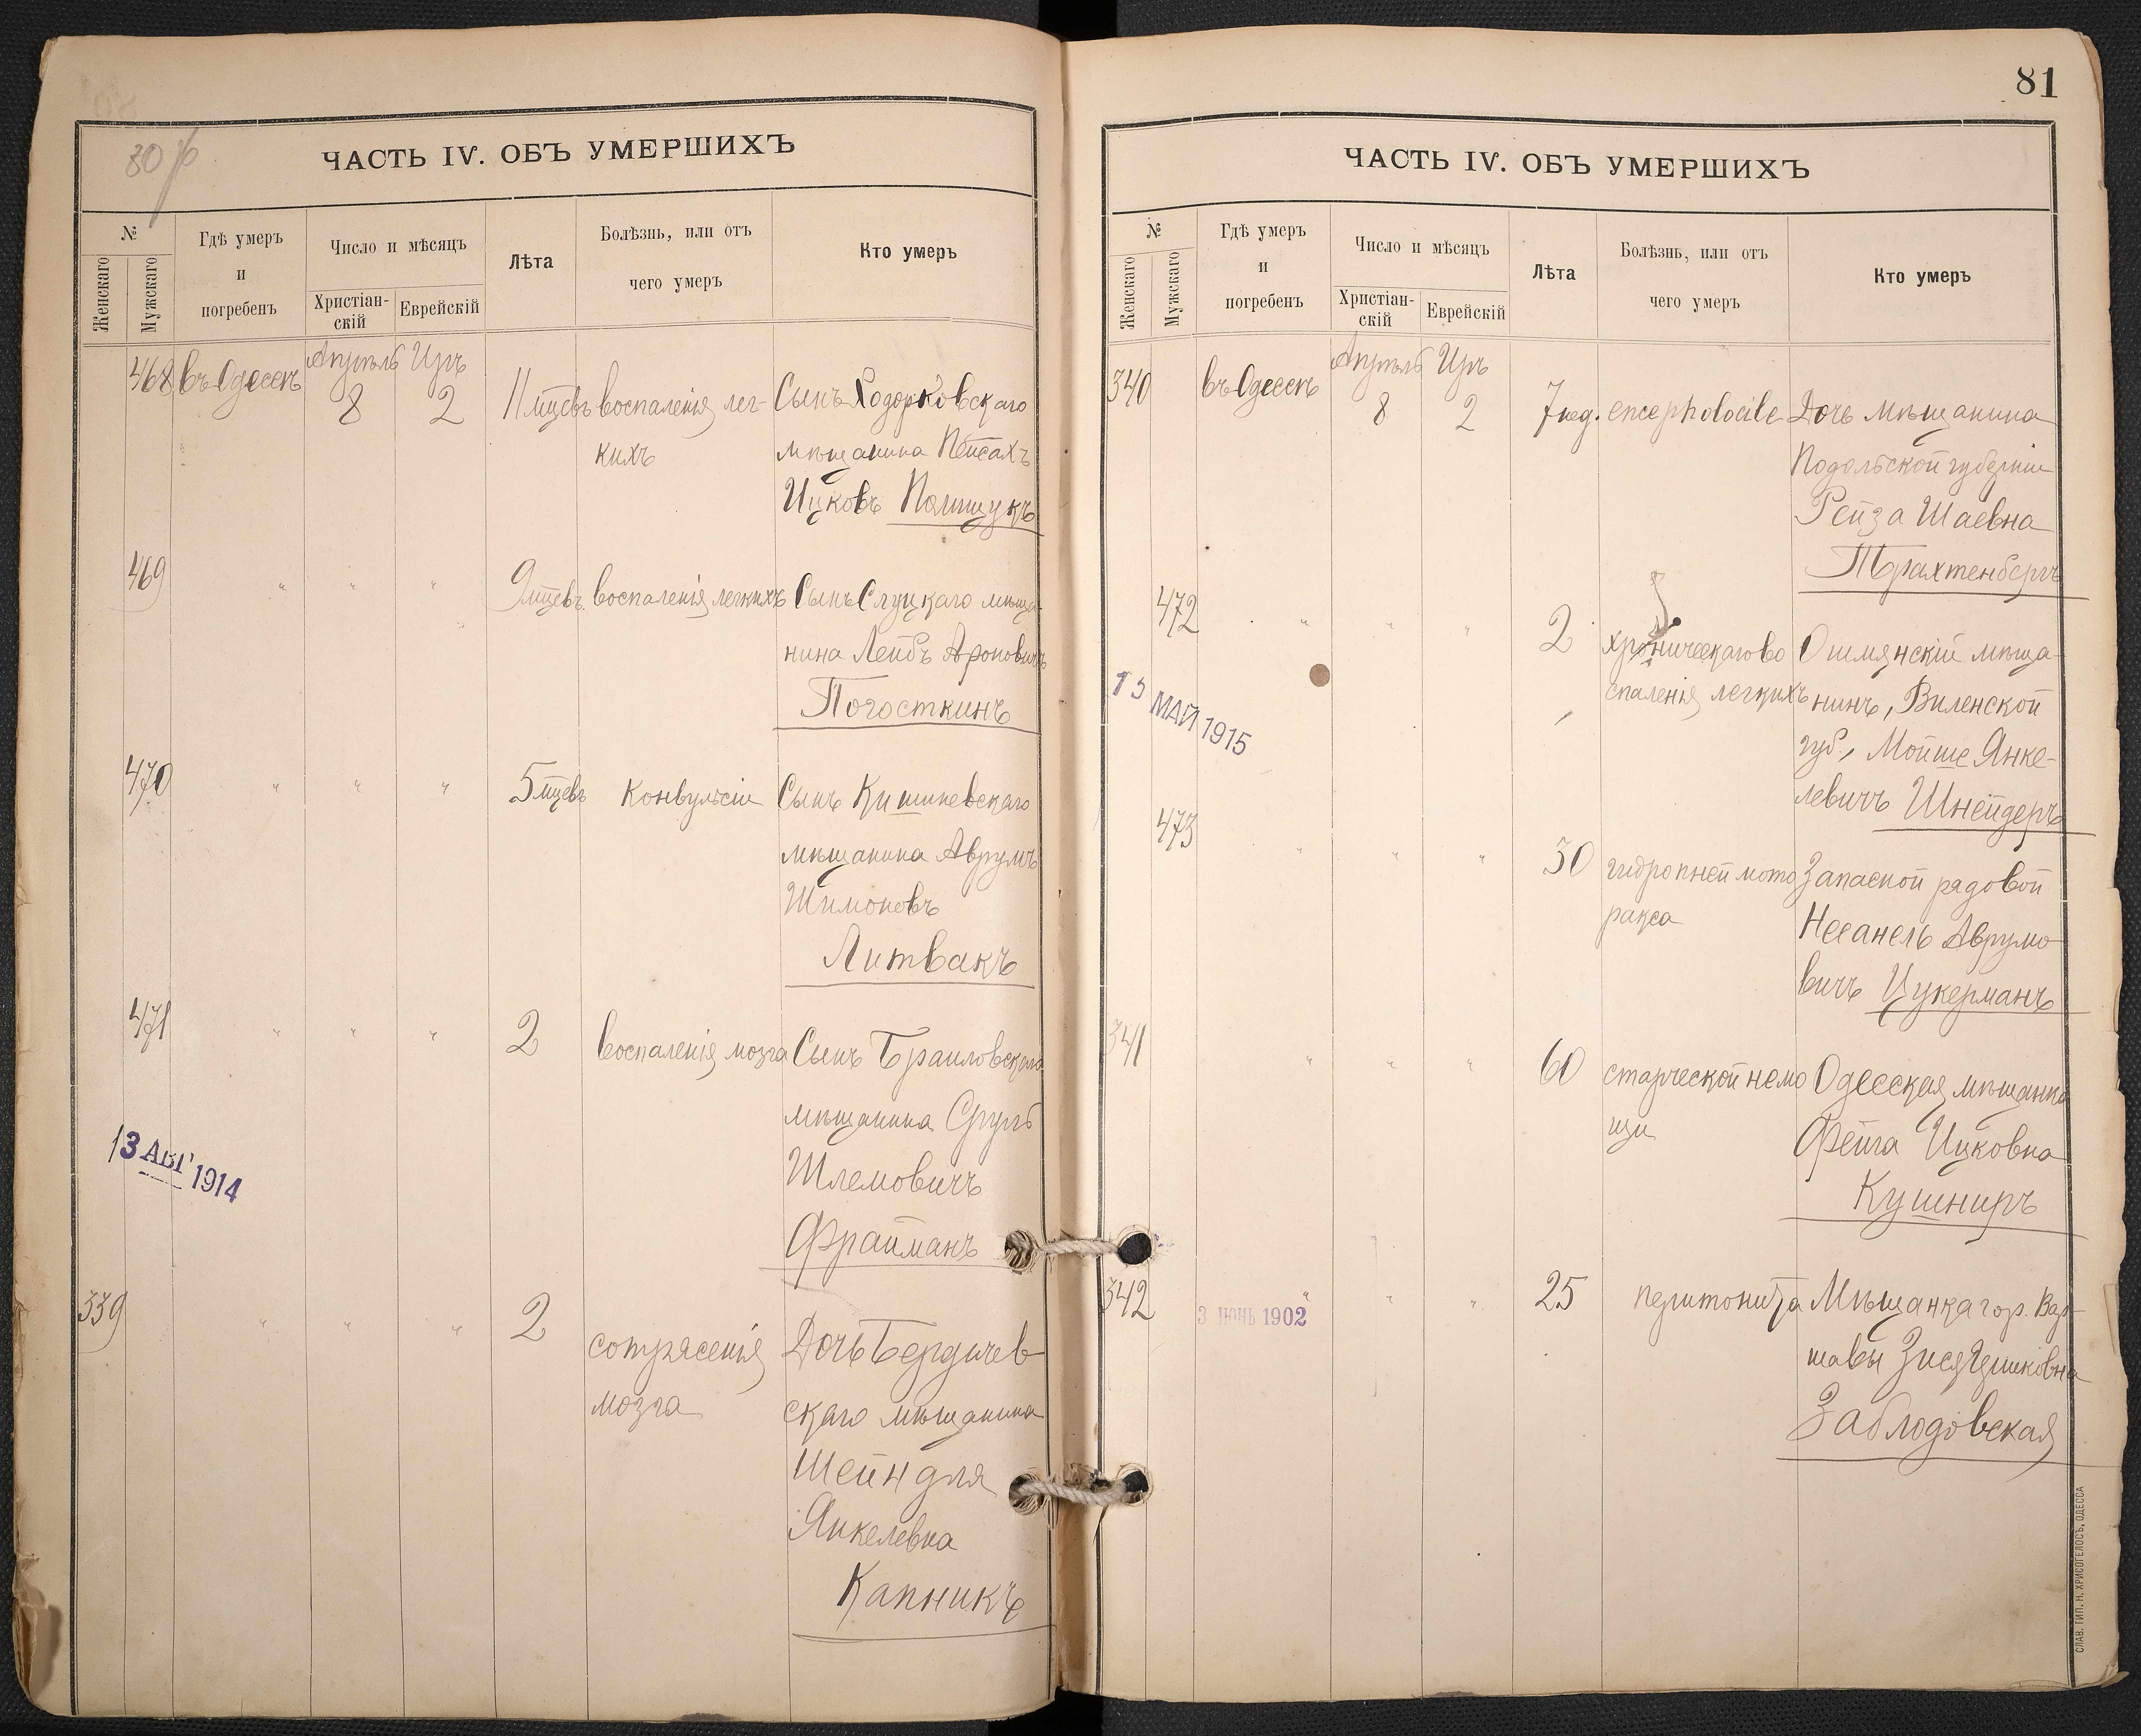 80 р
ЧАСТЬ IV. ОБЪ УМЕРШИХЪ
№
Женскаго
Мужскаго
Гдѣ умеръ
и
погребенъ
Число и мѣсяцъ
Христіан-
скій
Еврейскій
Лѣта
Болѣзнь, или отъ
чего умеръ
Кто умеръ
468 въ Одессѣ Апрѣль 8 Иръ 2 11 мцевъ воспаленія лег- Сынъ Ходорковскаго
кихъ мѣщанина Пейсахъ
Ицковъ Полищукъ
469 " " " 9 мцевъ воспаленія легкихъ Сынъ Слуцкаго мѣща-
нина Лейбъ Ароновичъ
Погосткинъ
470 " " " 5 мцевъ Конвульсіи Сынъ Кишиневскаго
мѣщанина Аврумъ
Шимоновъ
Литвакъ
471 " " " 2 воспаленія мозга Сынъ Браиловскаго
мѣщанина Сруль
Шлемовичъ
Фрайманъ
13 АВГ 1914
339 " " " 2 сотрясенія Дочь Бердичев
мозга скаго мѣщанина
Шейндля
Янкелевна
Капникъ
81
ЧАСТЬ IV. ОБЪ УМЕРШИХЪ
№
Женскаго
Мужскаго
Гдѣ умеръ
и
погребенъ
Число и мѣсяцъ
Христіан-
скій
Еврейскій
Лѣта
Болѣзнь, или отъ
чего умеръ
Кто умеръ
340 въ Одессѣ Апрѣль 8 Иръ 2 7 нед. encepholocile Дочь мѣщанина
Подольской губерніи
Рейза Шаевна
Трахтенбергъ
472 " " " 2 хроническаго во Ошмянскій мѣща-
спаленія легкихъ нинъ, Виленской
губ., Мойше Янке-
левичъ Шнейдеръ
15 МАЙ 1915
473 " " " 30 гидропнеймото Запасной рядовой
ракса Несанель Аврумо
вичъ Цукерманъ
341 " " " 60 старческой немо Одесская мѣщанка
щи Фейга Ицковна
Кушниръ
342 " " " 25 перитонита Мѣщанка гор. Вар-
шавы Зися
Заблодовская
3 ІЮНЬ 1902
СЛАВ. ТИП. Н. ХРИСОГЕЛОСЪ, ОДЕССА